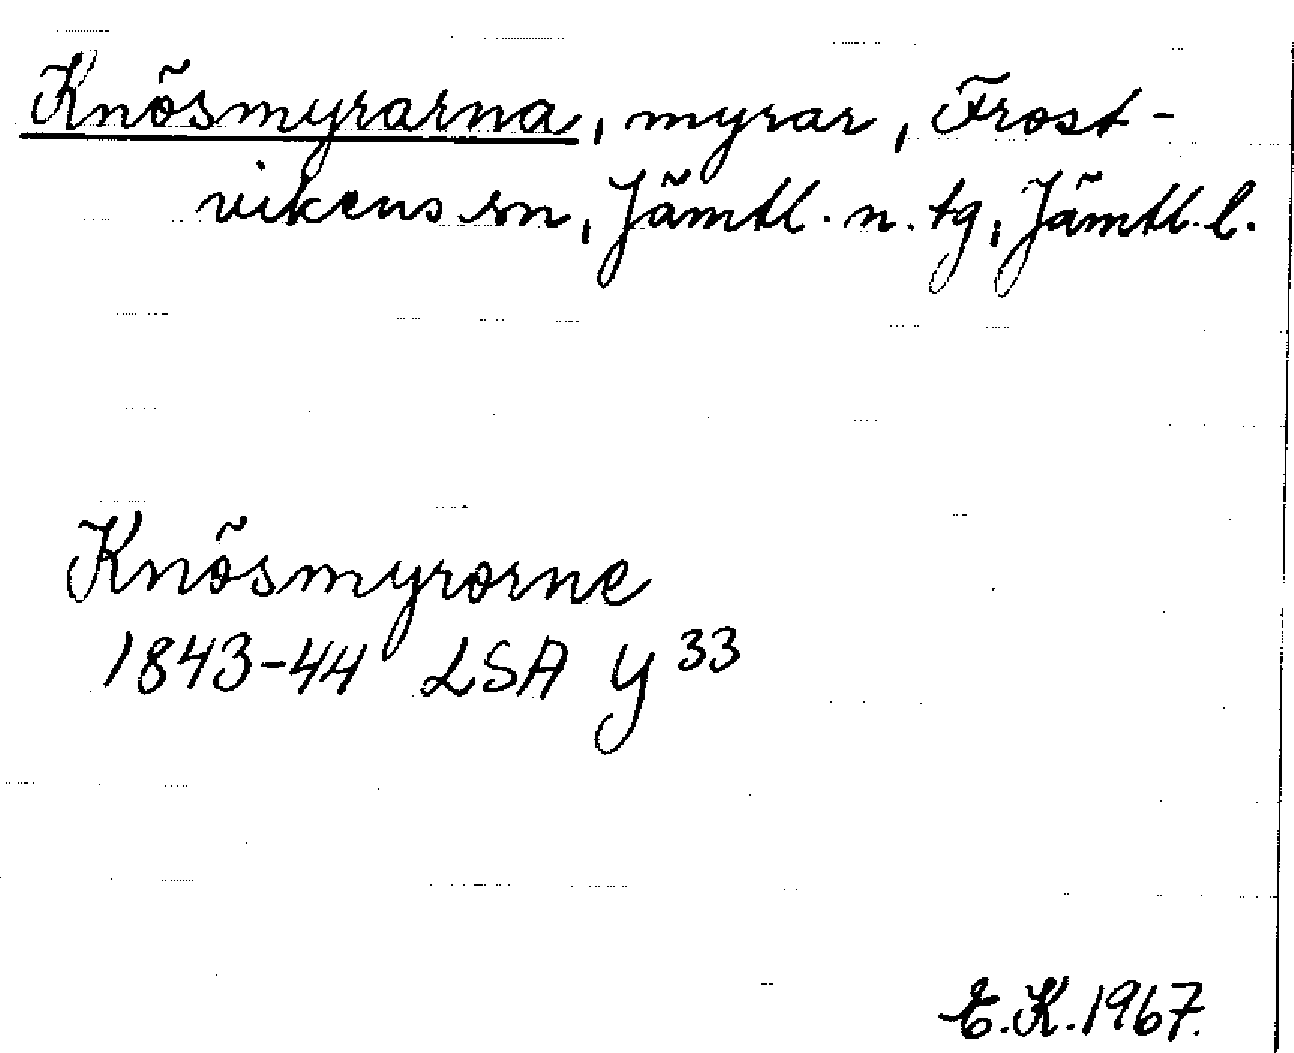 Knösmyrarna, myrar, Frost-
vikens sn, Jämtl. n. tg, Jämtl. l.
Knösmyrorne
1843-44 LSA Y 33
E.K. 1967.